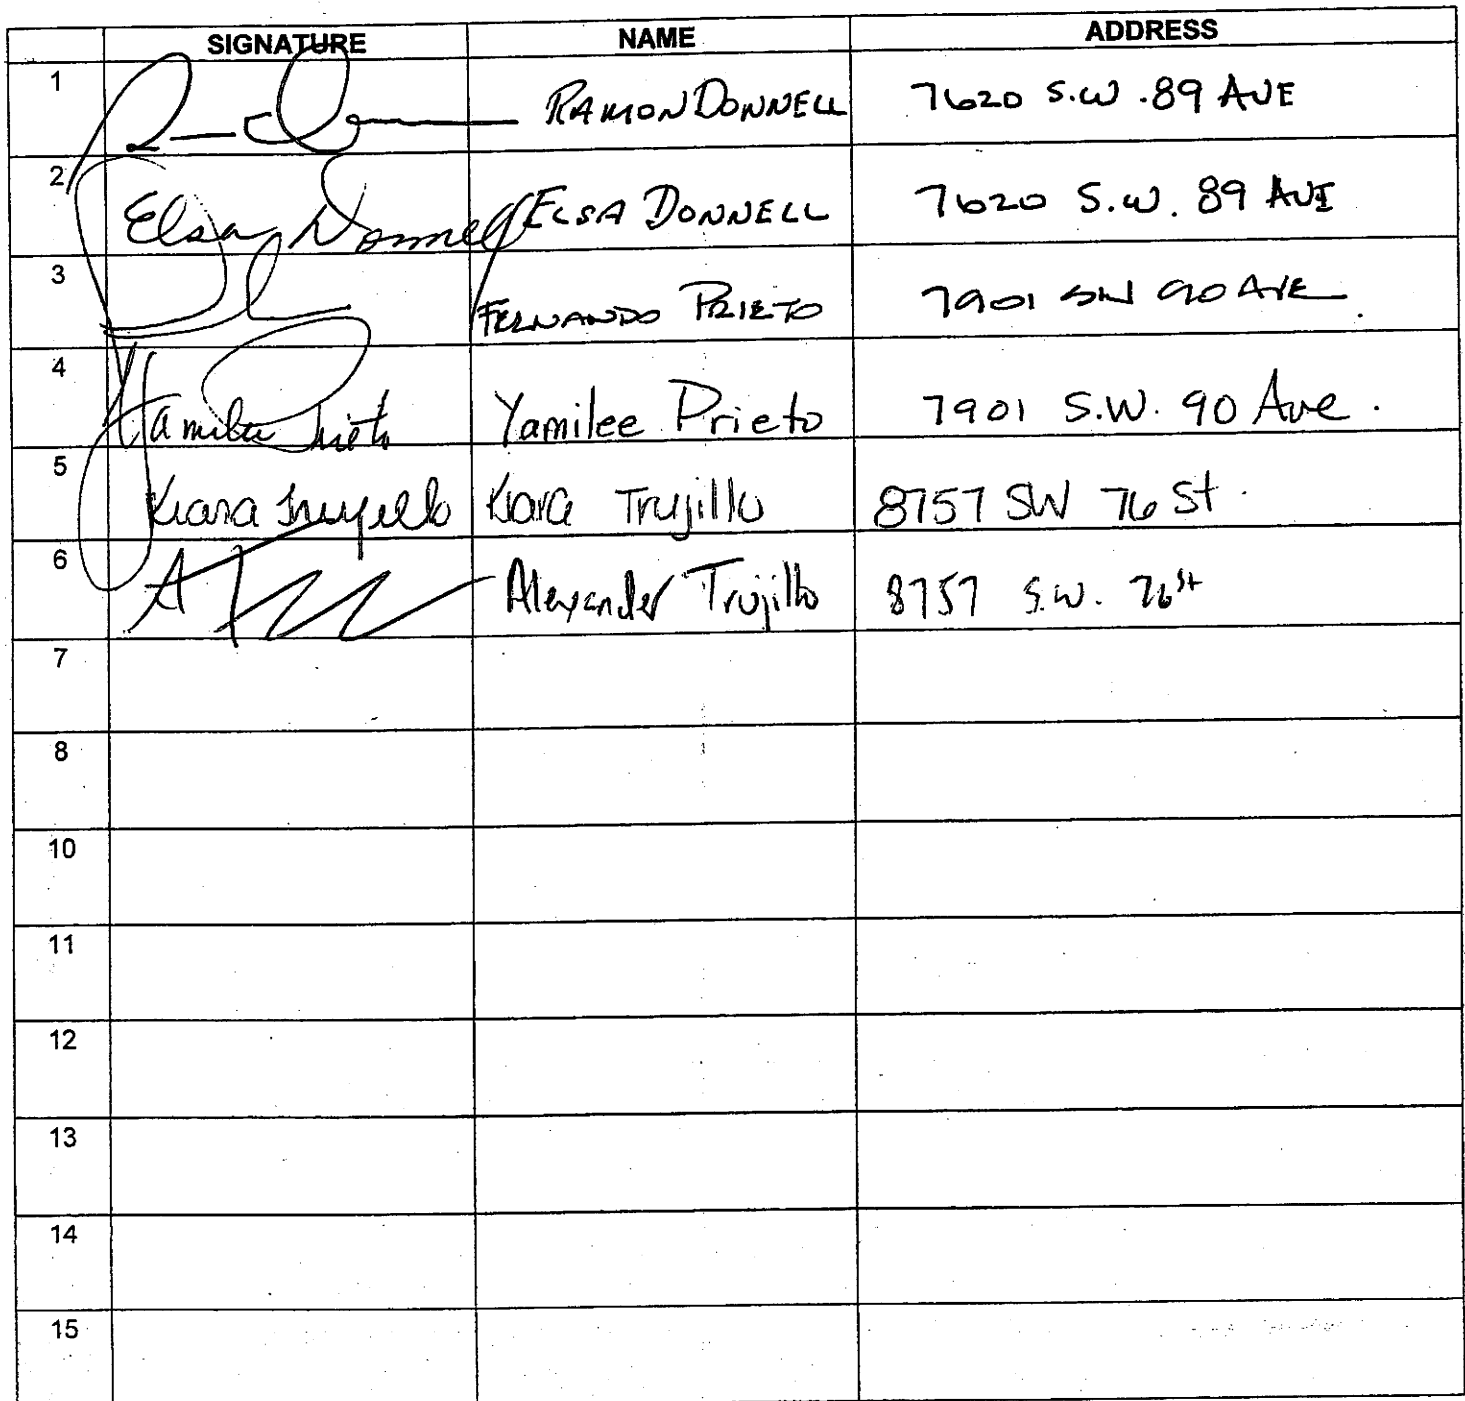 SIGNATURE NAME ADDRESS
1 RAMON DONNELL 7620 S.W. 89 AVE
2 Elsa Donnell ELSA DONNELL 7620 S.W. 89 AVE
3 FERNANDO PRIETO 7901 SW 90 AVE
4 Yamilee Prieto Yamilee Prieto 7901 S.W. 90 Ave.
5 Kiara Trujillo Kiara Trujillo 8757 SW 76 St
6 Alexander Trujillo 8757 S.W. 76 St
7
8
10
11
12
13
14
15